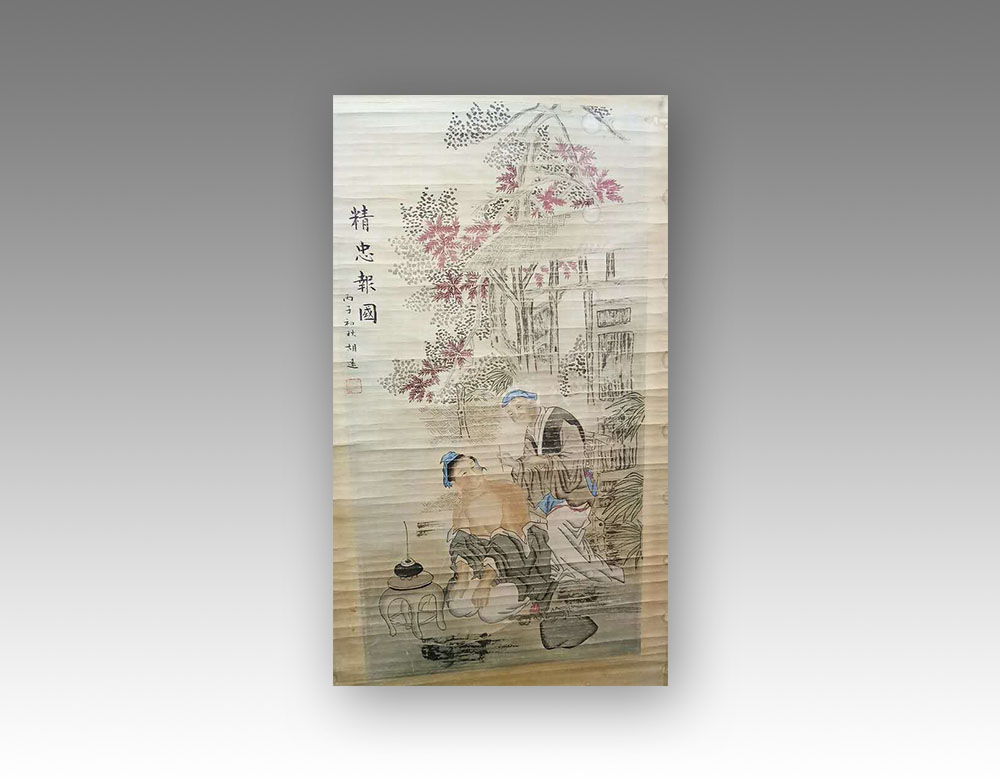 精忠報國
丙子初秋胡遠